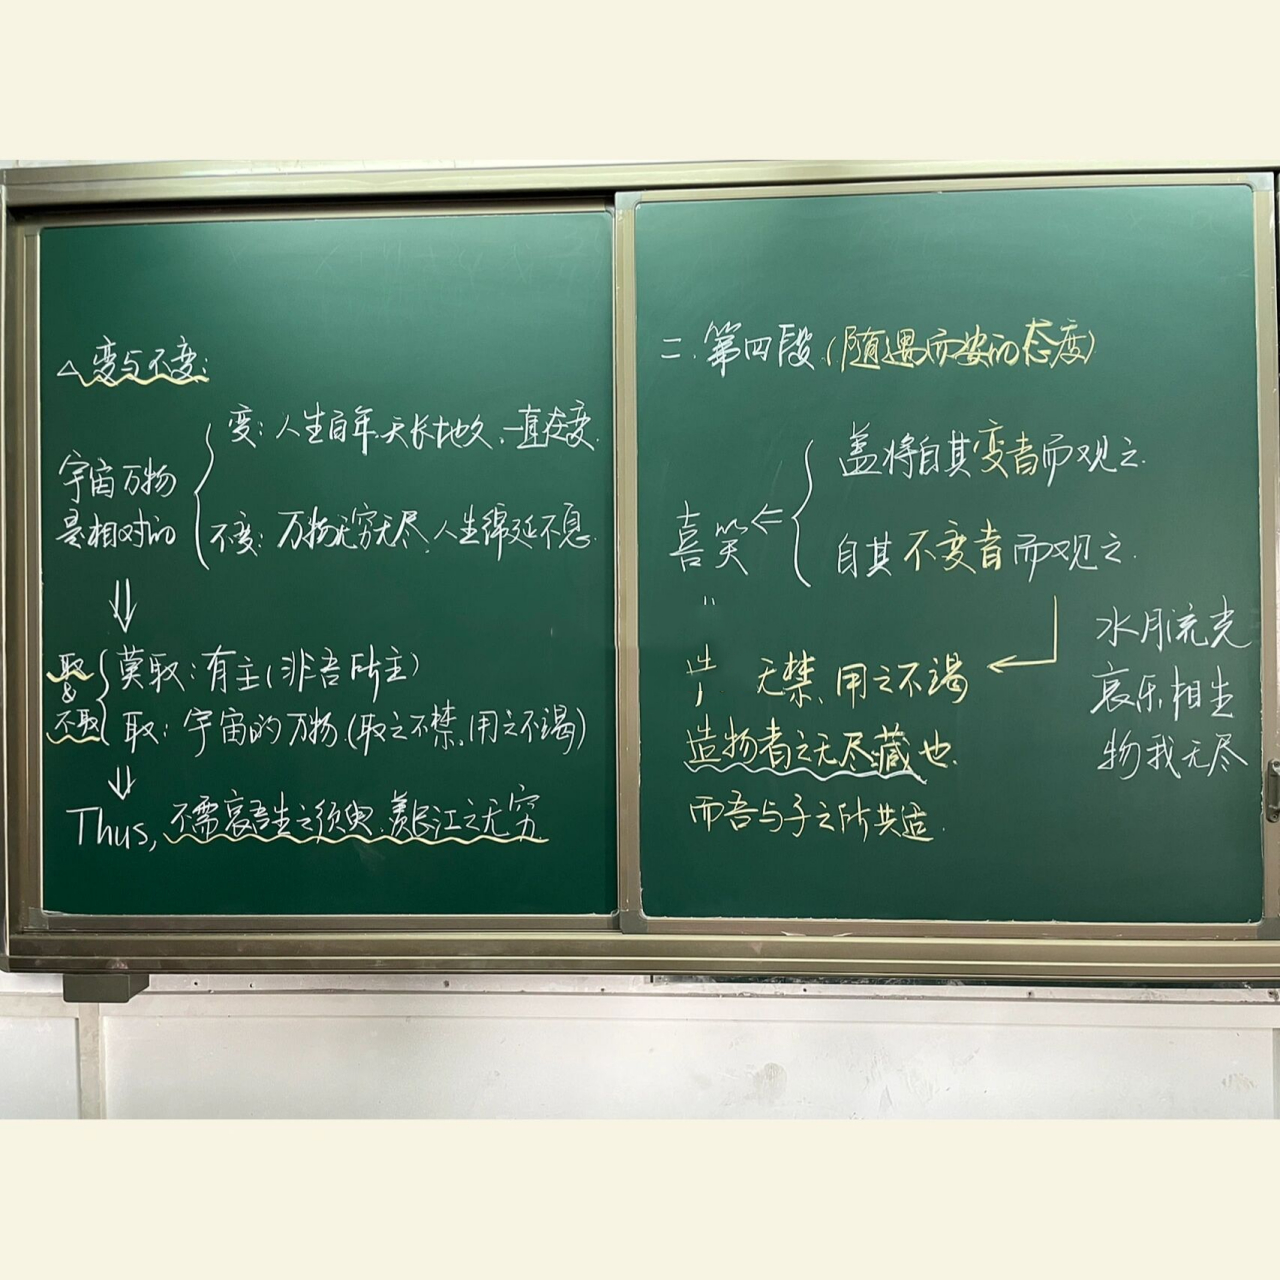 △变与不变:
变:人生百年.天长地久、一直在变.
宇宙万物
是相对的
不变:万物无穷无尽、人生绵延不息.
取
&
不取
莫取:有主(非吾所主)
取:宇宙的万物.(取之不禁、用之不竭)
Thus,不需哀吾生之须臾、羡长江之无穷
二.第四段(随遇而安的态度)
盖将自其变者而观之.
喜笑
自其不变者而观之.
水月流光
哀乐相生
物我无尽
无禁、用之不竭
造物者之无尽藏也.
而吾与子之所共适.